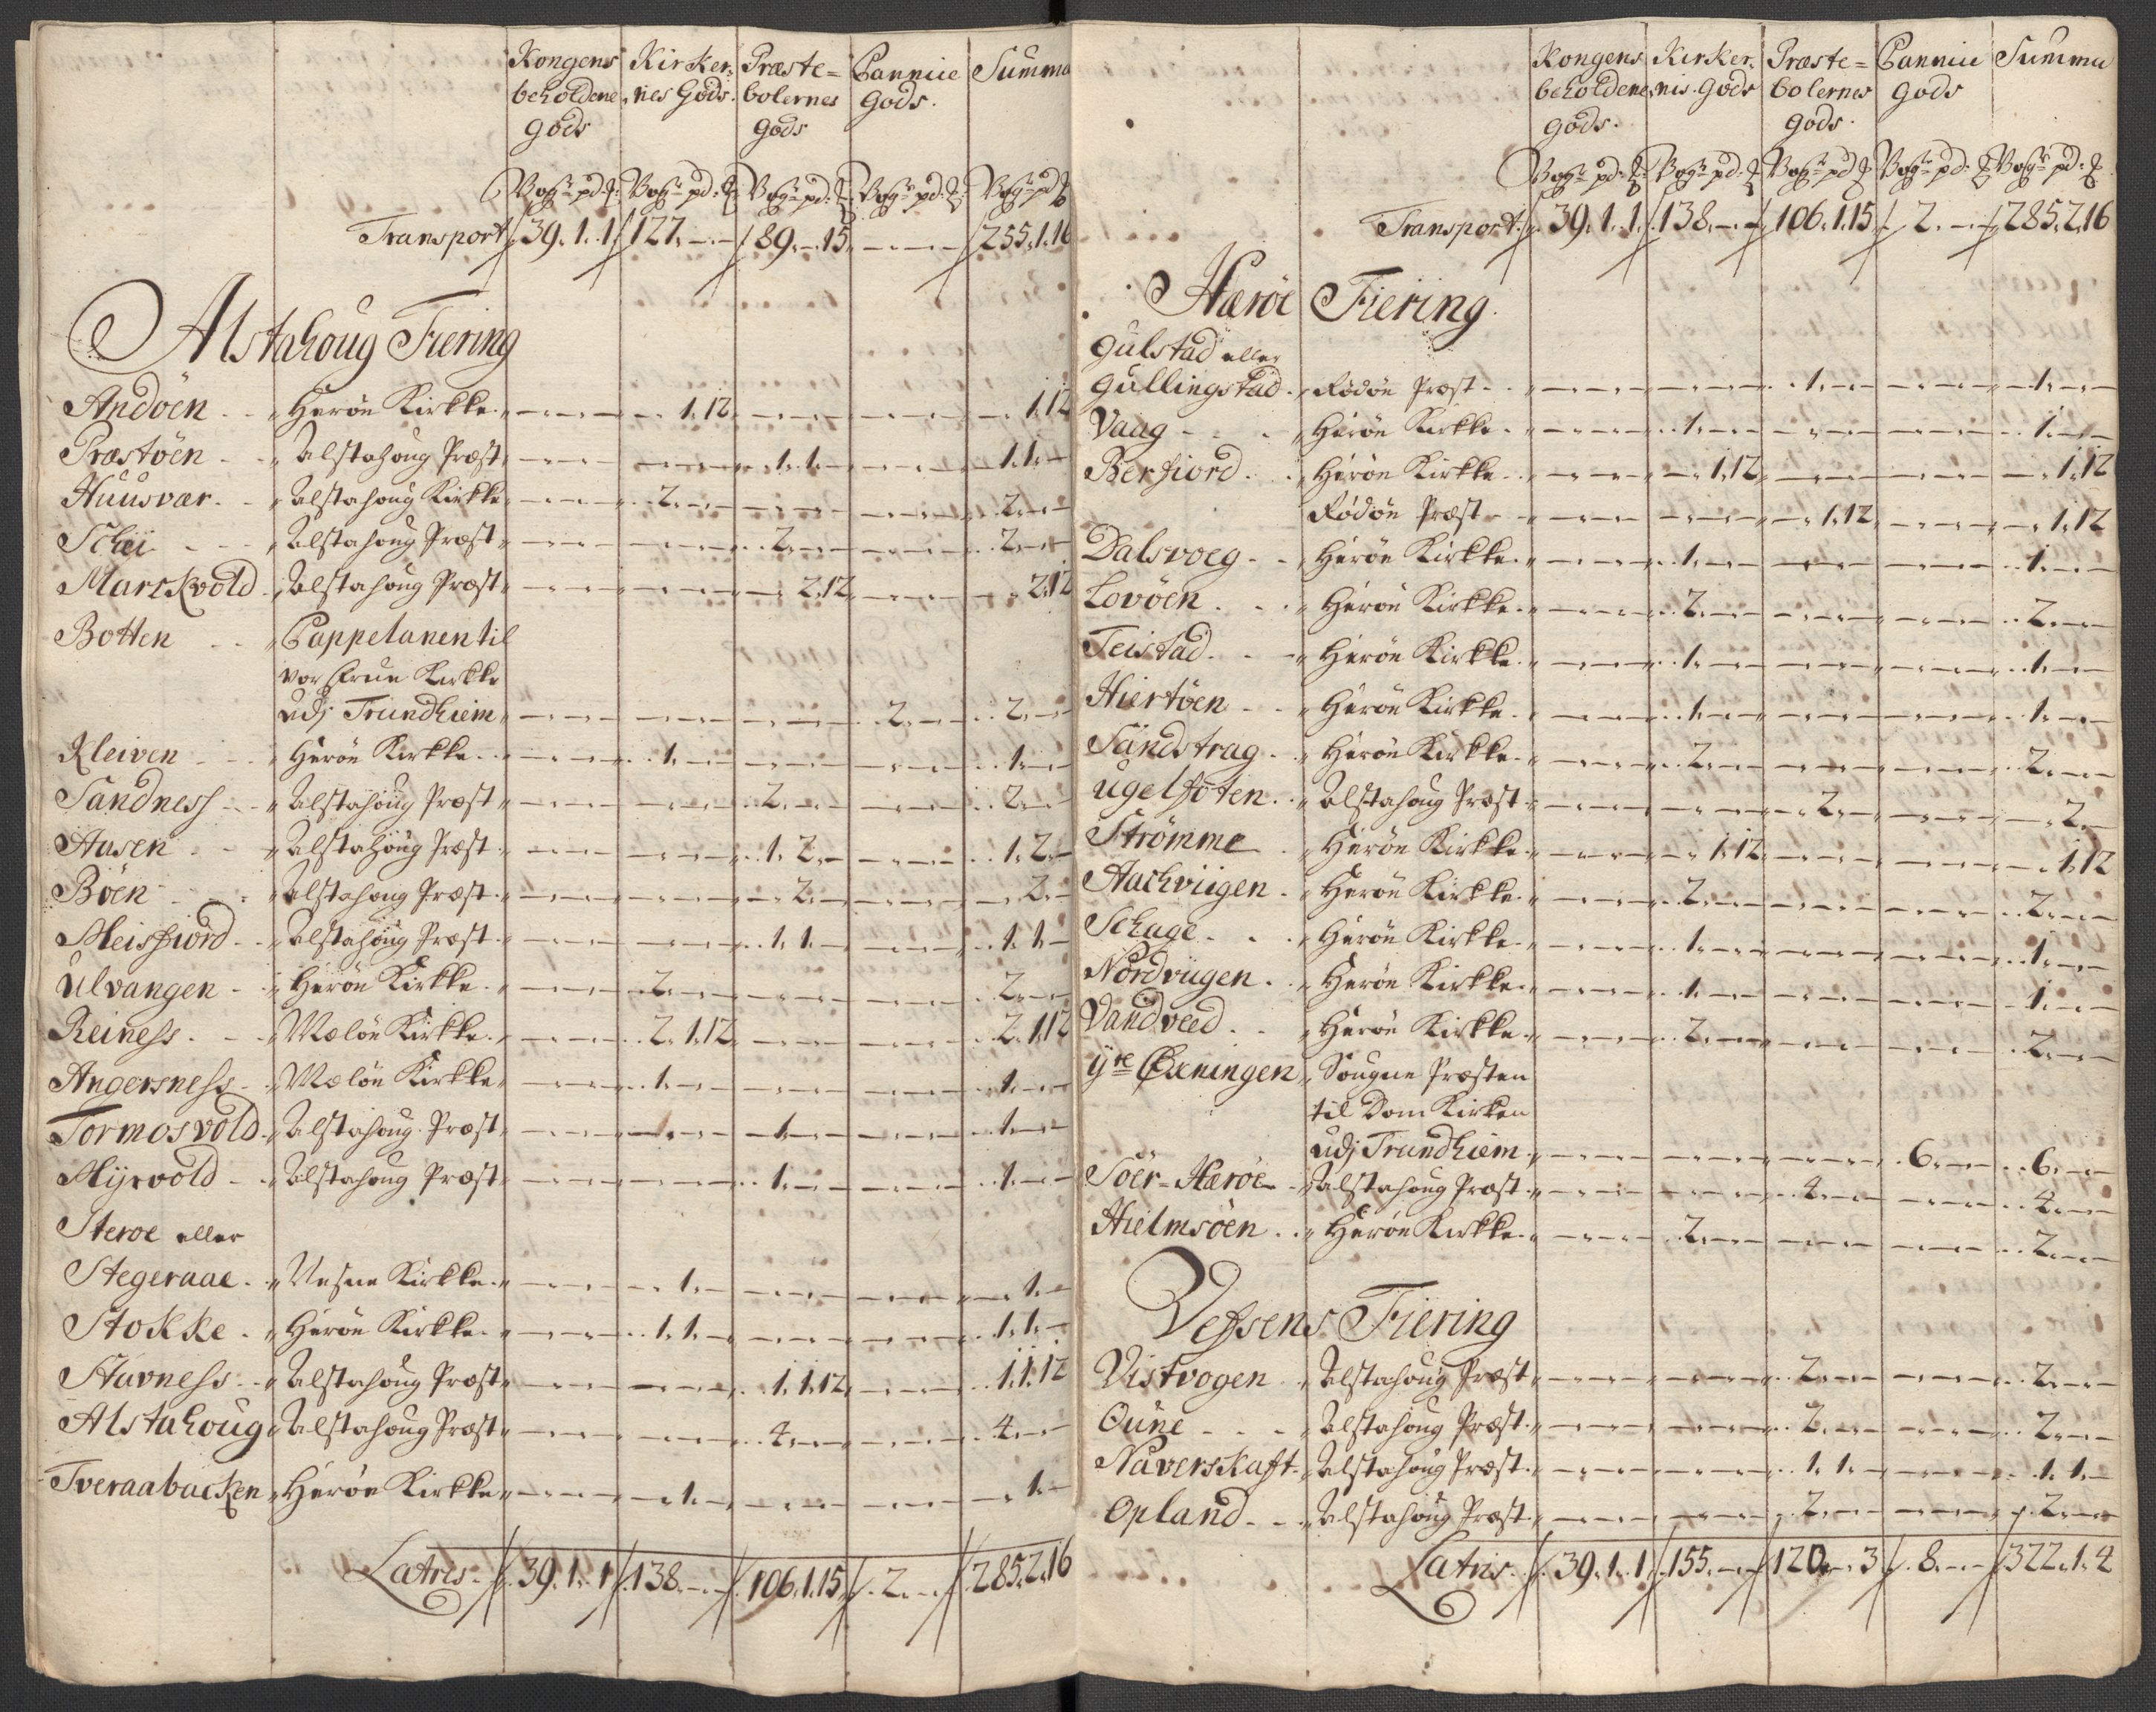 Kongens beholdene gods | Kirkernes Gods. | Præste=bolernes gods | Cannue Gods. | Summa
Vog: pd: | Vog: pd: | Vog: pd: | Vog: pd: | Vog: pd
Transport 39. 1. 1 127. - - 89. - 15 - - - 255. 1. 16
Alstahoug Fiering
Andöen - - Herøe Kirkke - 1. 12 - 1. 12
Præstöen - Alstahoug Præst - 1. 1. - 1. 1. -
Huusvær - Alstahoug Kirkke - 2. - - 2. - -
Schei - - Alstahoug Præst - 2. - - 2. - -
MarskVold Alstahoug Præst - 2. 12 - 2. 12
Botten - - Cappelanen til
vor Frue Kirkke
udj Trundhiem - 2. - - 2. - -
Kleiven - - Herøe Kirkke - 1. - - 1. - -
Sandness - Alstahoug Præst - 2. - - 2. - -
Aasen - - Alstahoug Præst - 1. 2. - 1. 2. -
Böen - - Alstahoug Præst - 2. - 2. -
Meisfiord - Alstahoug Præst - 1. 1. - 1. 1. -
Ulvangen - Herøe Kirkke - 2. - - 2. - -
Reiness. - Mæløe Kirkke - 2. 1. 12 - 2. 1. 12
Angersness - Mæløe Kirkke - 1. - - 1. - -
Tormosvold Alstahoug Præst - 1. - - 1. - -
Myrvold - Alstahoug Præst - 1. - - 1. - -
Steroe eller
Stegeraae. Vesne Kirkke - 1. - 1. -
Stokke. Herøe Kirkke - 1. 1. - 1. 1. -
Stavness - Alstahoug Præst - 1. 1. 12 - 1. 1. 12
Alstahoug Alstahoug Præst - 4. - - 4. - -
Tveraabacken Herøe Kirkke - 1. - 1. -
Lateris. 39. 1. 1 138. - - 106. 1. 15 2. - - 285. 2. 16
Kongens beholdene gods. | Kirkernis. gods | Præste=bolernes gods. | Cannue gods | Summa
Vog: pd: | Vog: pd: | Vog: pd | Vog: pd: | Vog: pd:
Transport. 39. 1. 1 138. - - 106. 1. 15 2. - - 285. 2. 16
Hærøe Fiering.
Gulstad eller
Gullingstad. Rødøe Præst - 1. - - 1. - -
Vaag - - Herøe Kirkke - 1. - - 1. - -
Berfiord. Herøe Kirkke - 1. 12 - 1. 12
Rødøe Præst - 1. 12 - 1. 12
Dalsvoeg - Herøe Kirkke - 1. - - 1. - -
Lovöen. Herøe Kirkke - 2. - - 2. - -
Teistad. - Herøe Kirkke - 1. - - 1. - -
Hiertöen - Herøe Kirkke - 1. - - 1. - -
Sandstrag. Herøe Kirkke - 2. - - 2. - -
ugelfoten. Alstahoug Præst - 2. - 2. -
Strømme Herøe Kirkke - 1. 12 - 1. 12
Aachviigen. Herøe Kirkke - 2. - - 2. - -
Schage. - Herøe Kirkke - 1. - - 1. - -
Nordviigen. Herøe Kirkke - 1. - - 1. - -
Vandveed. - Herøe Kirkke - 2. - - 2. - -
Yte Øxningen Sougne Præsten
til Dom Kirken
udj Trundhiem - 6. - - 6. - -
Söer-Hærøe - Alstahoug Præst - 4. - - 4. - -
Hielmsöen. Herøe Kirkke - 2. - - 2. - -
Vefsens Fiering
Vistvogen Alstahoug Præst - 2. - - 2. - -
Oune - - Alstahoug Præst - 2. - - 2. - -
Naverskaft. Alstahoug Præst - 1. 1. - 1. 1. -
Opland - - Alstahoug Præst - 2. - - 2. - -
Lateris. 39. 1. 1 155. - - 120. - 3 8. - - 322. 1. 4